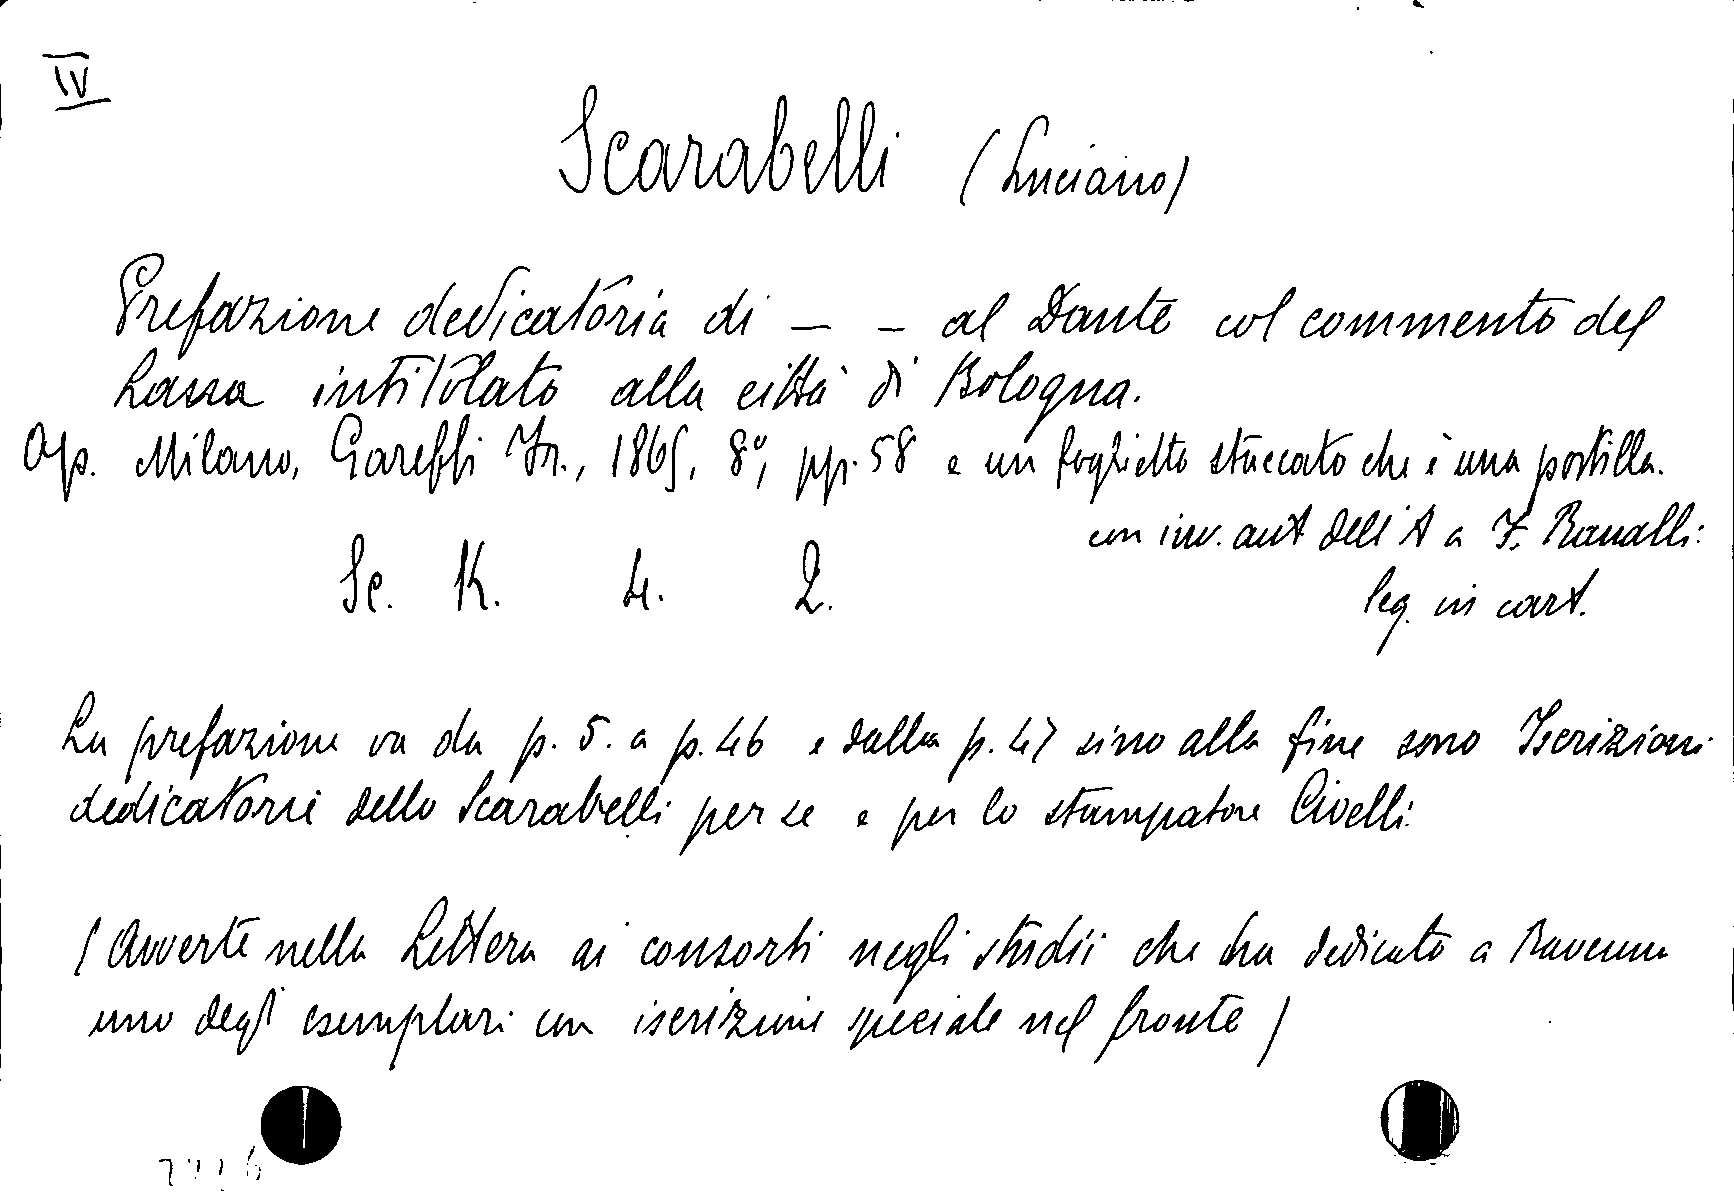 IV
Scarabelli (Luciano)
Prefazione dedicatoria di — — al Dante col commento del
Lana intitolato alla città di Bologna.
Op. Milano, Gareffi Fr., 1865, 8°, pp. 58 e un foglietto staccato che è una postilla.
con inv. aut dell'A a F. Ranalli:
Sc. K. 4. 2.
leg. in cart.
La prefazione va da p. 5. a p. 46 e dalla p. 47 sino alla fine sono Iscrizioni
dedicatorie dello Scarabelli per se e per lo stampatore Civelli.
(Avverte nella Lettera ai consorti negli studii che ha dedicato a Ravenna
uno degli esemplari con iscrizione speciale nel fronte)